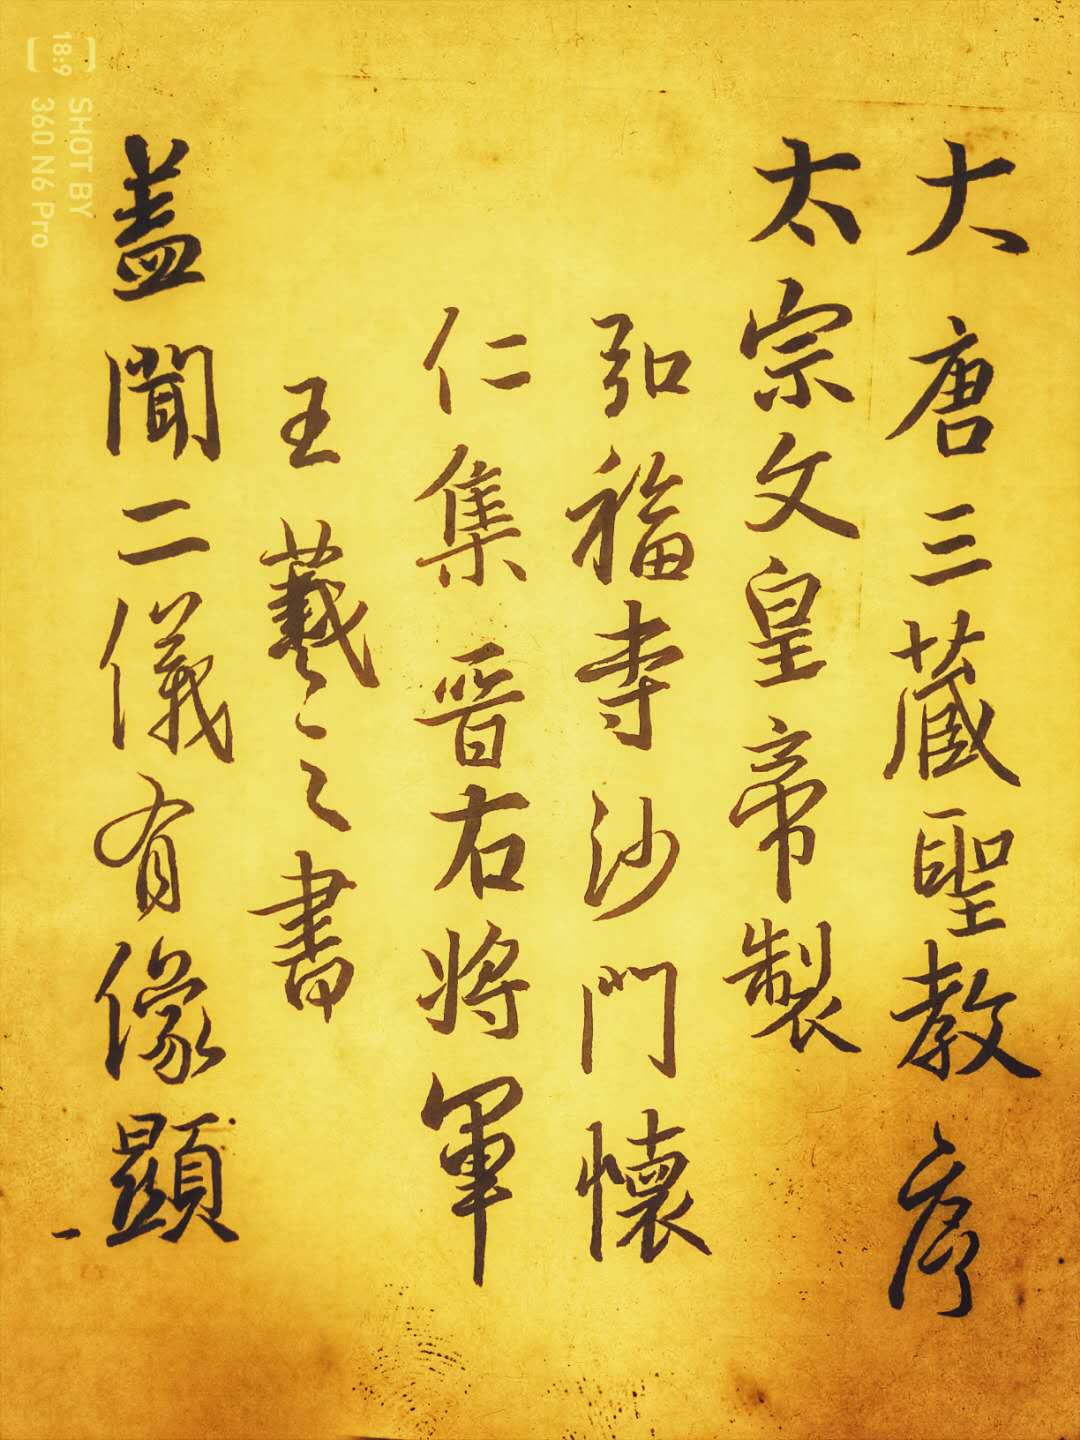 大唐三藏聖教序
太宗文皇帝製
弘福寺沙門懷
仁集晋右將軍
王羲之書
盖聞二儀有像顯
[18:9] SHOT BY
360 N6 Pro